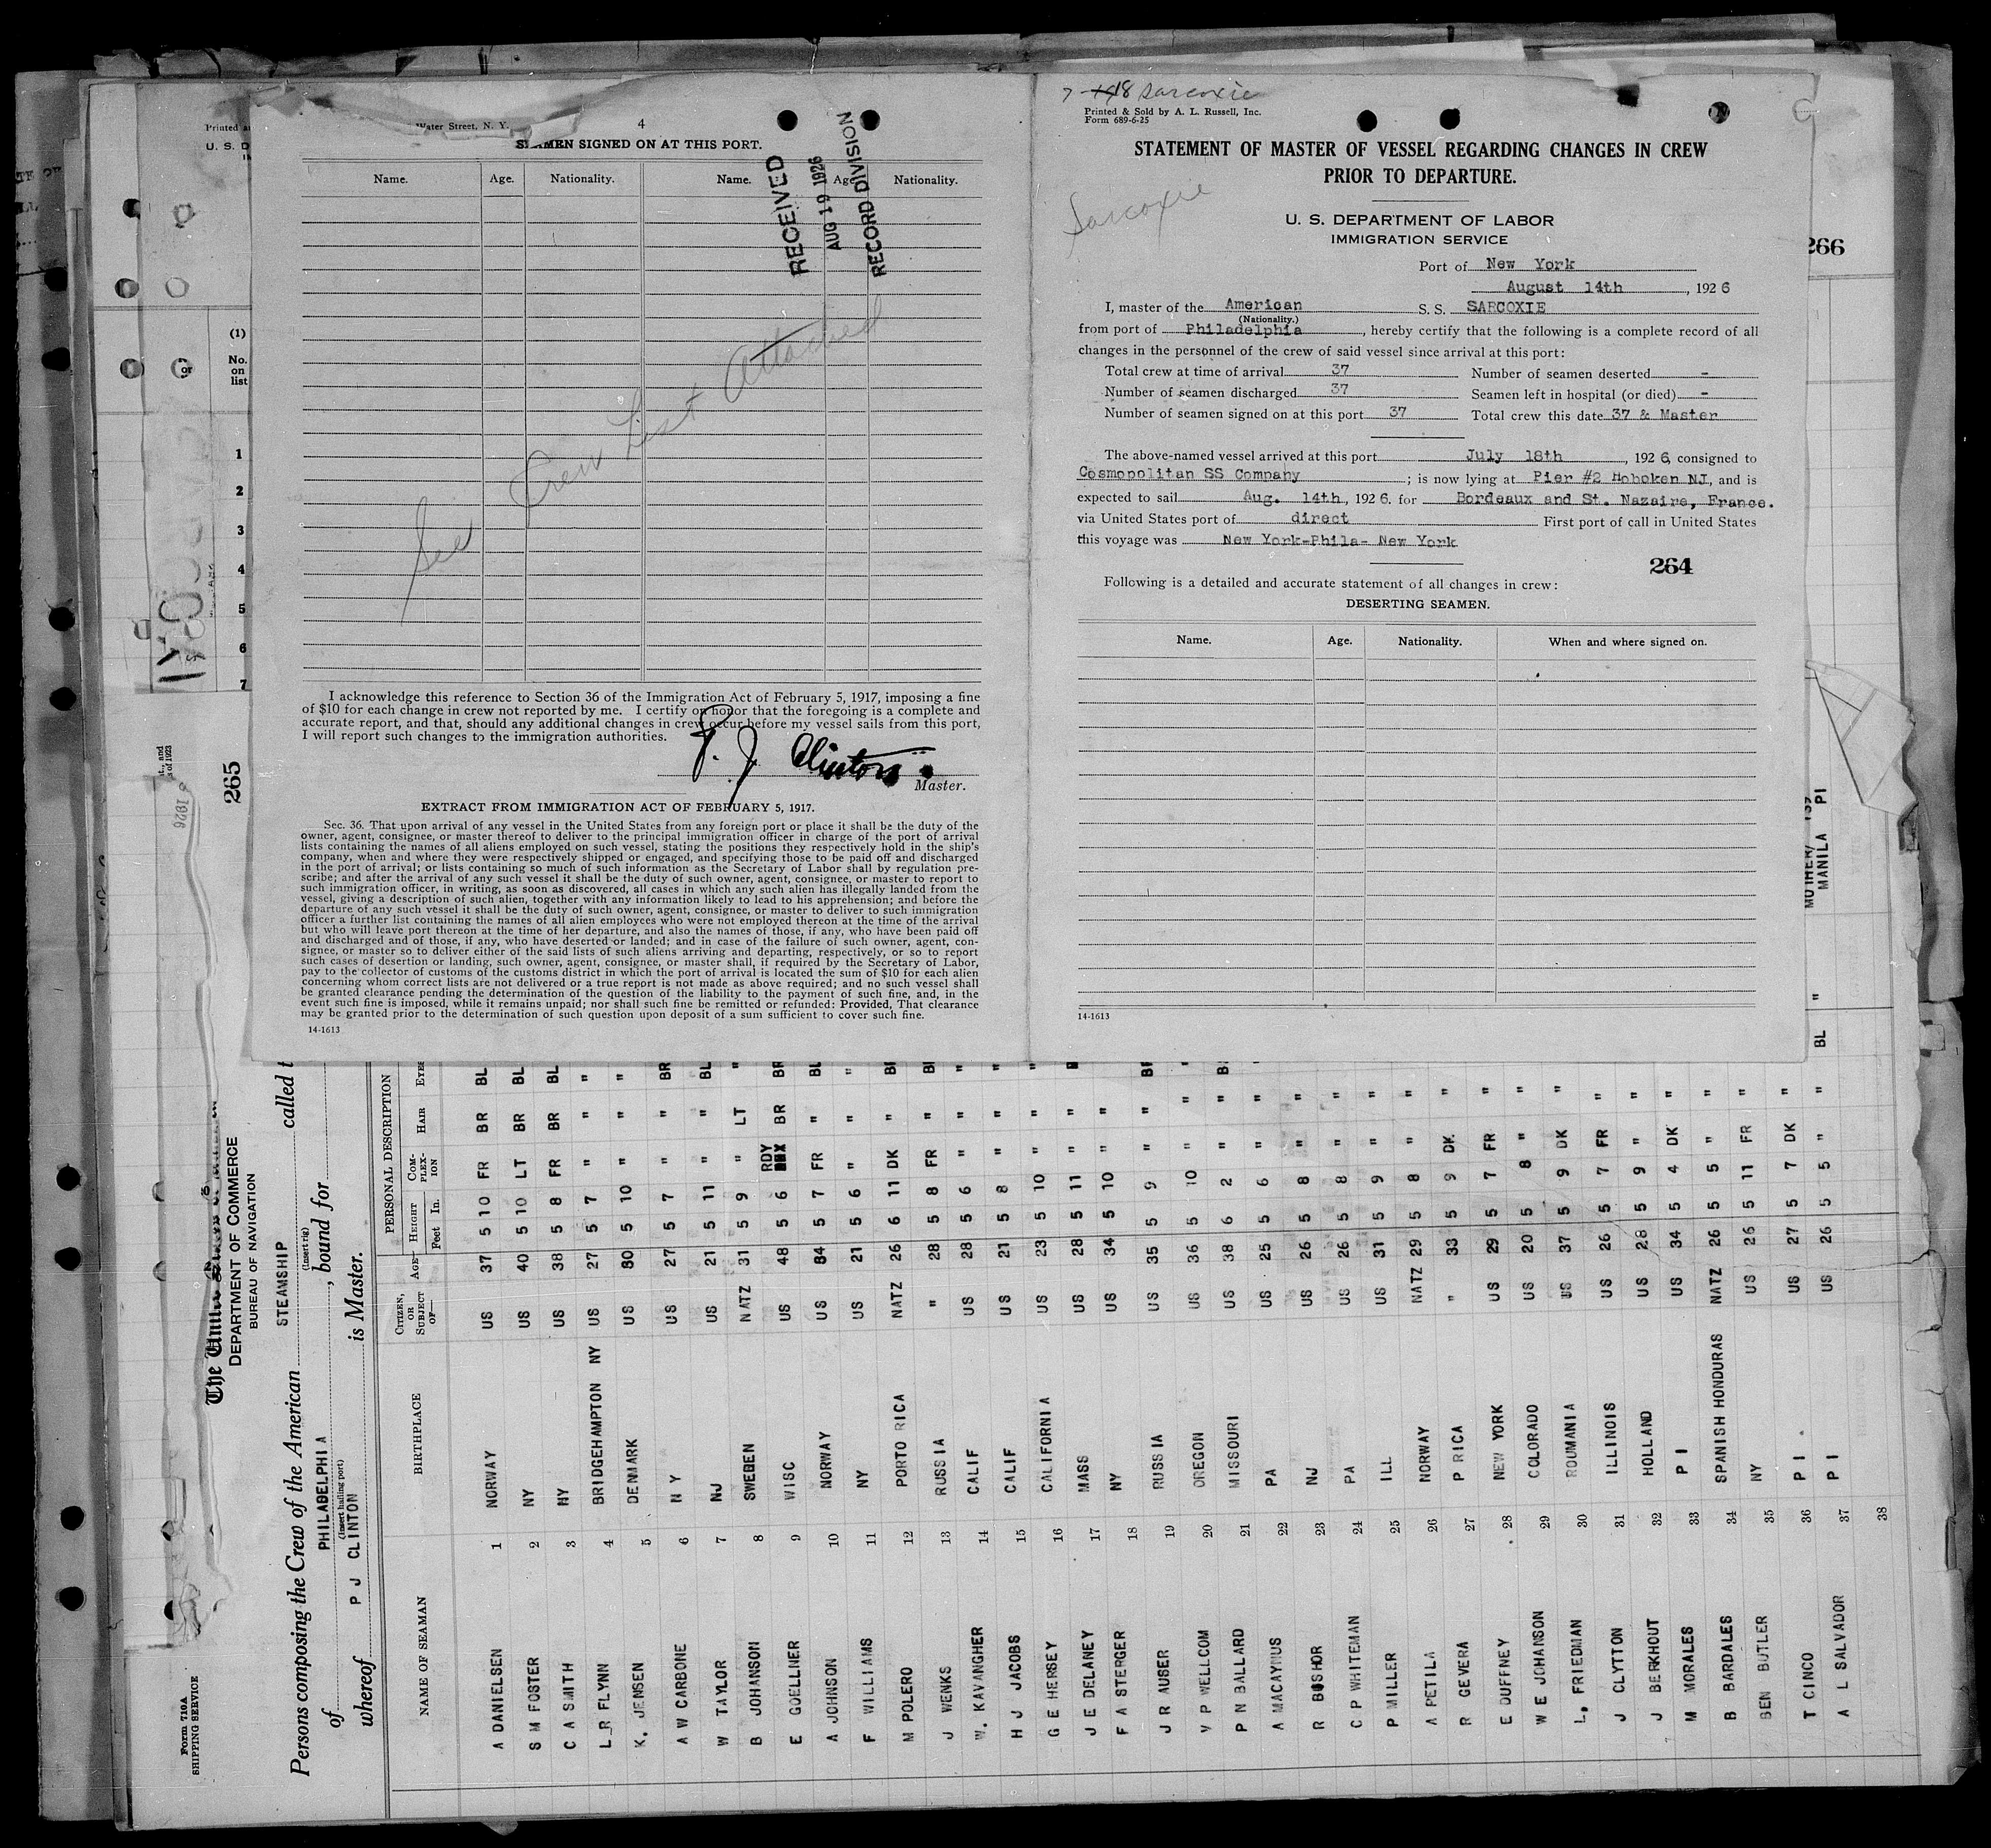 Water Street, N. Y.
4
SEAMEN SIGNED ON AT THIS PORT.
Name. Age. Nationality. Name. Age. Nationality.
RECEIVED
AUG 19 1926
RECORD DIVISION
See Crew List Attached
I acknowledge this reference to Section 36 of the Immigration Act of February 5, 1917, imposing a fine
of $10 for each change in crew not reported by me. I certify on honor that the foregoing is a complete and
accurate report, and that, should any additional changes in crew occur before my vessel sails from this port,
I will report such changes to the immigration authorities.
P. J. Clinton
Master.
EXTRACT FROM IMMIGRATION ACT OF FEBRUARY 5, 1917.
Sec. 36. That upon arrival of any vessel in the United States from any foreign port or place it shall be the duty of the
owner, agent, consignee, or master thereof to deliver to the principal immigration officer in charge of the port of arrival
lists containing the names of all aliens employed on such vessel, stating the positions they respectively hold in the ship's
company, when and where they were respectively shipped or engaged, and specifying those to be paid off and discharged
in the port of arrival; or lists containing so much of such information as the Secretary of Labor shall by regulation pre-
scribe; and after the arrival of any such vessel it shall be the duty of such owner, agent, consignee, or master to report to
such immigration officer, in writing, as soon as discovered, all cases in which any such alien has illegally landed from the
vessel, giving a description of such alien, together with any information likely to lead to his apprehension; and before the
departure of any such vessel it shall be the duty of such owner, agent, consignee, or master to deliver to such immigration
officer a further list containing the names of all alien employees who were not employed thereon at the time of the arrival
but who will leave port thereon at the time of her departure, and also the names of those, if any, who have been paid off
and discharged and of those, if any, who have deserted or landed; and in case of the failure of such owner, agent, con-
signee, or master so to deliver either of the said lists of such aliens arriving and departing, respectively, or so to report
such cases of desertion or landing, such owner, agent, consignee, or master shall, if required by the Secretary of Labor,
pay to the collector of customs of the customs district in which the port of arrival is located the sum of $10 for each alien
concerning whom correct lists are not delivered or a true report is not made as above required; and no such vessel shall
be granted clearance pending the determination of the question of the liability to the payment of such fine, and, in the
event such fine is imposed, while it remains unpaid; nor shall such fine be remitted or refunded: Provided, That clearance
may be granted prior to the determination of such question upon deposit of a sum sufficient to cover such fine.
14-1613
Sarcoxie
Printed & Sold by A. L. Russell, Inc.
Form 689-6-25
STATEMENT OF MASTER OF VESSEL REGARDING CHANGES IN CREW
PRIOR TO DEPARTURE.
Sarcoxie
U. S. DEPARTMENT OF LABOR
IMMIGRATION SERVICE
Port of New York
August 14th, 1926
I, master of the American S. S. SARCOXIE
(Nationality.)
from port of Philadelphia, hereby certify that the following is a complete record of all
changes in the personnel of the crew of said vessel since arrival at this port:
Total crew at time of arrival 37 Number of seamen deserted -
Number of seamen discharged 37 Seamen left in hospital (or died) -
Number of seamen signed on at this port 37 Total crew this date 37 & Master
The above-named vessel arrived at this port July 18th, 1926, consigned to
Cosmopolitan SS Company; is now lying at Pier #2 Hoboken NJ, and is
expected to sail Aug. 14th, 1926. for Bordeaux and St. Nazaire, France.
via United States port of direct First port of call in United States
this voyage was New York-Phila- New York
264
Following is a detailed and accurate statement of all changes in crew:
DESERTING SEAMEN.
Name. Age. Nationality. When and where signed on.
14-1613
266
265
Printed
U. S. D
(1)
No.
on
list
1
2
3
4
5
6
7
MANILA PI
BL "
Form 710A
SHIPPING SERVICE
DEPARTMENT OF COMMERCE
BUREAU OF NAVIGATION
Persons composing the Crew of the American STEAMSHIP called
(Insert rig)
of PHILADELPHIA, bound for
(Insert hailing port)
whereof P J CLINTON is Master.
NAME OF SEAMAN BIRTHPLACE CITIZEN, OR SUBJECT OF— AGE PERSONAL DESCRIPTION
HEIGHT Feet In. COMPLEXION HAIR EYES
A DANIELSEN 1 NORWAY US 37 5 10 FR BR BL
S M FOSTER 2 NY US 40 5 10 LT BR BL
C A SMITH 3 NY US 38 5 8 FR BR BL
L R FLYNN 4 BRIDGEHAMPTON NY US 27 5 7 " " "
K. JENSEN 5 DENMARK US 30 5 10 " " "
A W CARBONE 6 N Y US 27 5 7 " " BR
W TAYLOR 7 NJ US 21 5 11 " " BL
B JOHANSON 8 SWEDEN NATZ 31 5 9 " LT "
E GOELLNER 9 WISC US 48 5 6 RDY BR BR
A JOHNSON 10 NORWAY US 84 5 7 FR " BL
F WILLIAMS 11 NY US 21 5 6 " " "
M POLERO 12 PORTO RICA NATZ 26 6 11 DK "
J WENKS 13 RUSSIA " 28 5 8 FR "
W. KAVANGHER 14 CALIF US 28 5 6 " " "
H J JACOBS 15 CALIF US 21 5 8 " " "
G E HERSEY 16 CALIFORNIA US 23 5 10 " " "
J E DELANEY 17 MASS US 28 5 11 " "
F A STERGER 18 NY US 34 5 10 " "
J R AUSER 19 RUSSIA US 35 5 9 " "
V P WELLCOM 20 OREGON US 36 5 10 " " "
P N BALLARD 21 MISSOURI US 38 6 2 " "
A MACAYNUS 22 PA US 25 5 6 " "
R BOSHOR 23 NJ US 26 5 8 " "
C P WHITEMAN 24 PA US 26 5 8 " "
P MILLER 25 ILL US 31 5 9 " "
A PETILA 26 NORWAY NATZ 29 5 8 " "
R GEVERA 27 P RICA " 33 5 9 DK "
E DUFFNEY 28 NEW YORK US 29 5 7 FR "
W E JOHANSON 29 COLORADO US 20 5 8 " "
L. FRIEDMAN 30 ROUMANIA US 37 5 9 DK "
J CLYTTON 31 ILLINOIS US 26 5 7 FR "
J BERKHOUT 32 HOLLAND US 28 5 9 " "
M MORALES 33 P I US 34 5 4 DK "
B BARDALES 34 SPANISH HONDURAS NATZ 26 5 5 " "
BEN BUTLER 35 NY US 26 5 11 FR "
T CINCO 36 P I US 27 5 7 DK "
A L SALVADOR 37 P I US 26 5 5 " "
38